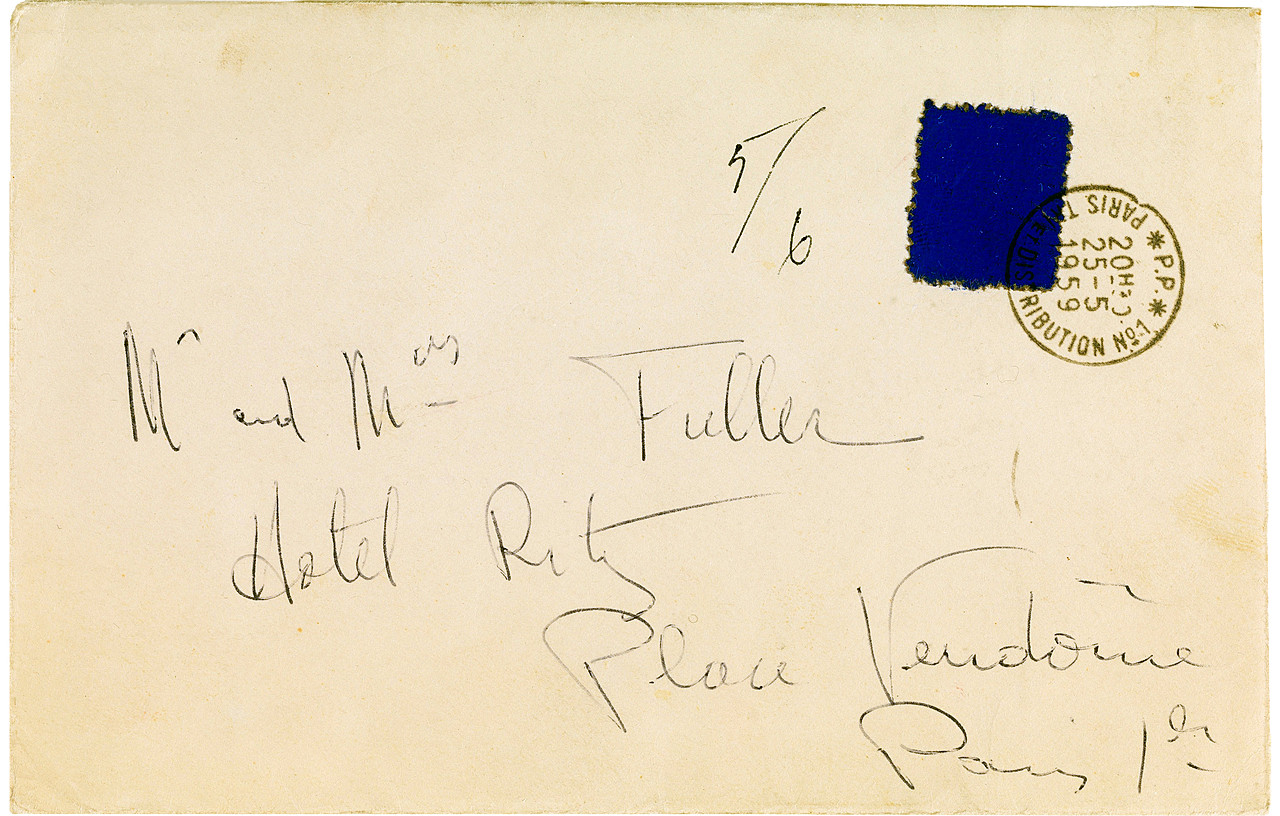 5/6
* P.P. *
PARIS TRI ET DISTRIBUTION No 1
20H30
25-5
1959
Mr and Mrs Fuller
Hotel Ritz
Place Vendôme
Paris 1er